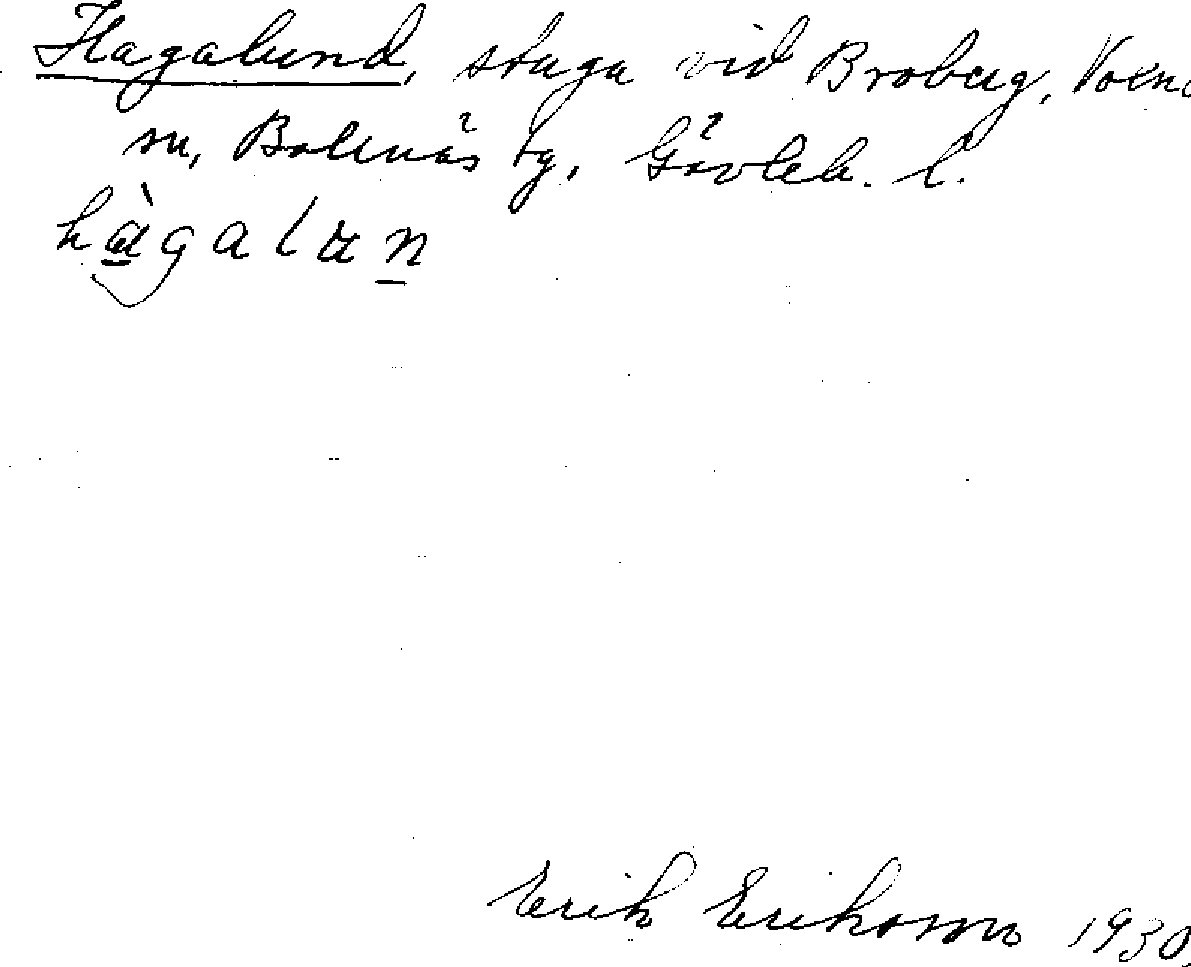 Hagalund, stuga vid Broberg, Voxna
sn, Bollnäs tg, Gävleb. l.
hàgalun
Erik Eriksson 1930.